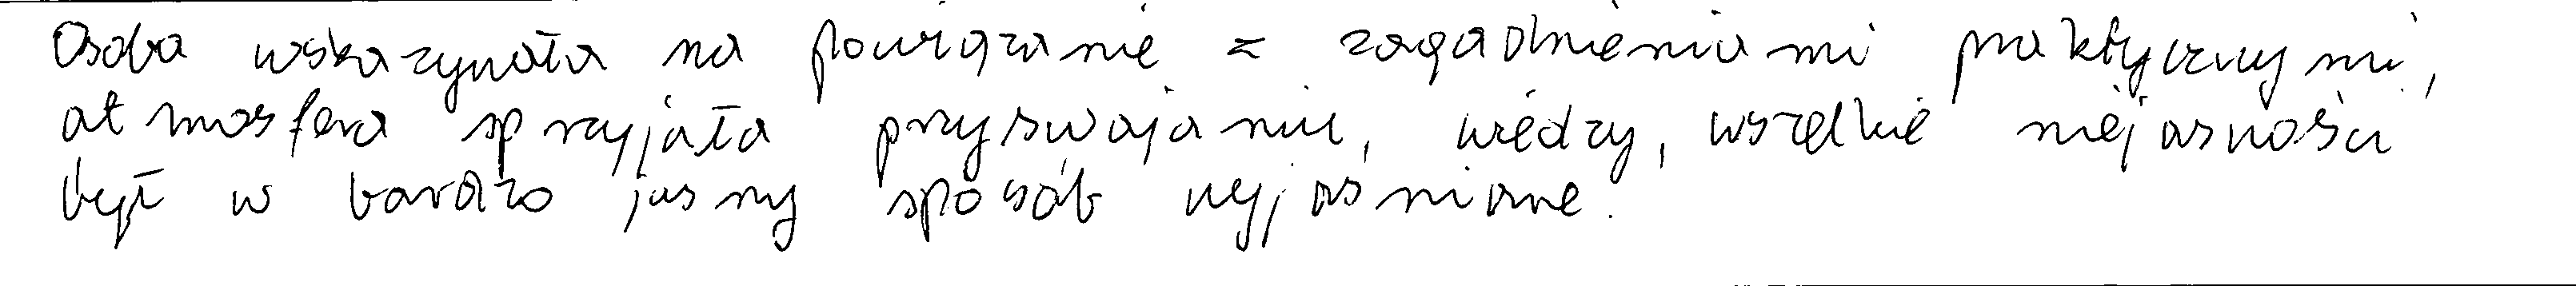 Osoba wskazywała na powiązanie z zagadnieniami praktycznymi,
atmosfera sprzyjała przyswajaniu, wiedzy, wszelkie niejasności
był w bardzo jasny sposób wyjaśniane.